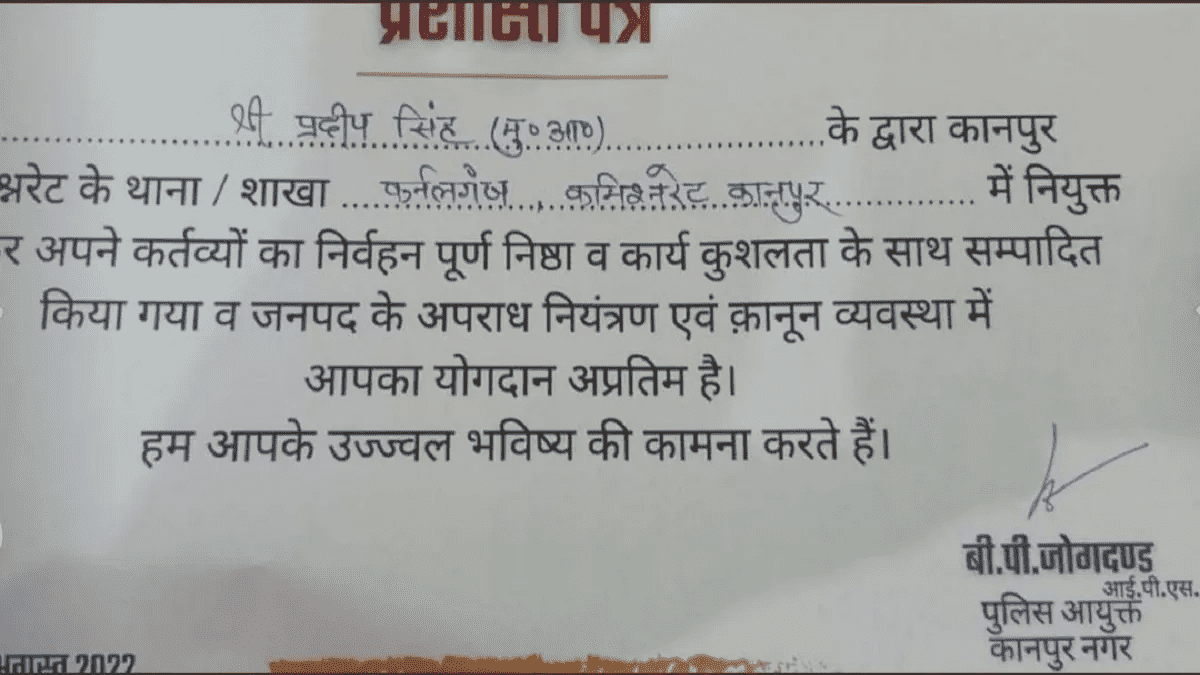 प्रशस्ति पत्र
श्री प्रदीप सिंह (मु॰ आ॰) के द्वारा कानपुर
श्नरेट के थाना / शाखा कर्नलगंज, कमिश्नरेट कानपुर में नियुक्त
र अपने कर्तव्यों का निर्वहन पूर्ण निष्ठा व कार्य कुशलता के साथ सम्पादित
किया गया व जनपद के अपराध नियंत्रण एवं क़ानून व्यवस्था में
आपका योगदान अप्रतिम है।
हम आपके उज्ज्वल भविष्य की कामना करते हैं।
बी.पी.जोगदण्ड
आई.पी.एस.
पुलिस आयुक्त
कानपुर नगर
अगस्त 2022